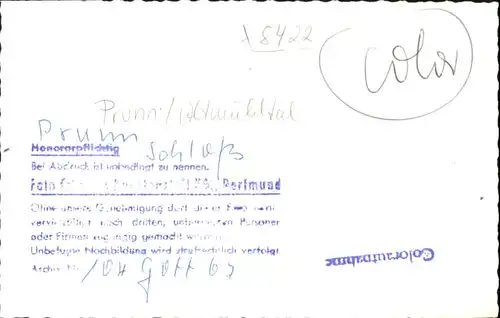 18422
Color
Prunn / Altmühltal
Prunn
Schloß
Honorarpflichtig
Bei Abdruck ist unbedingt zu nennen.
Foto Dortmund
Ohne unsere Genehmigung darf dieses Foto nicht
vervielfältigt noch dritten, unbefugten Personen
oder Firmen zugängig gemacht werden.
Unbefugte Nachbildung wird strafrechtlich verfolgt.
Archiv Nr. 104 Gött 67
Coloraufnahme